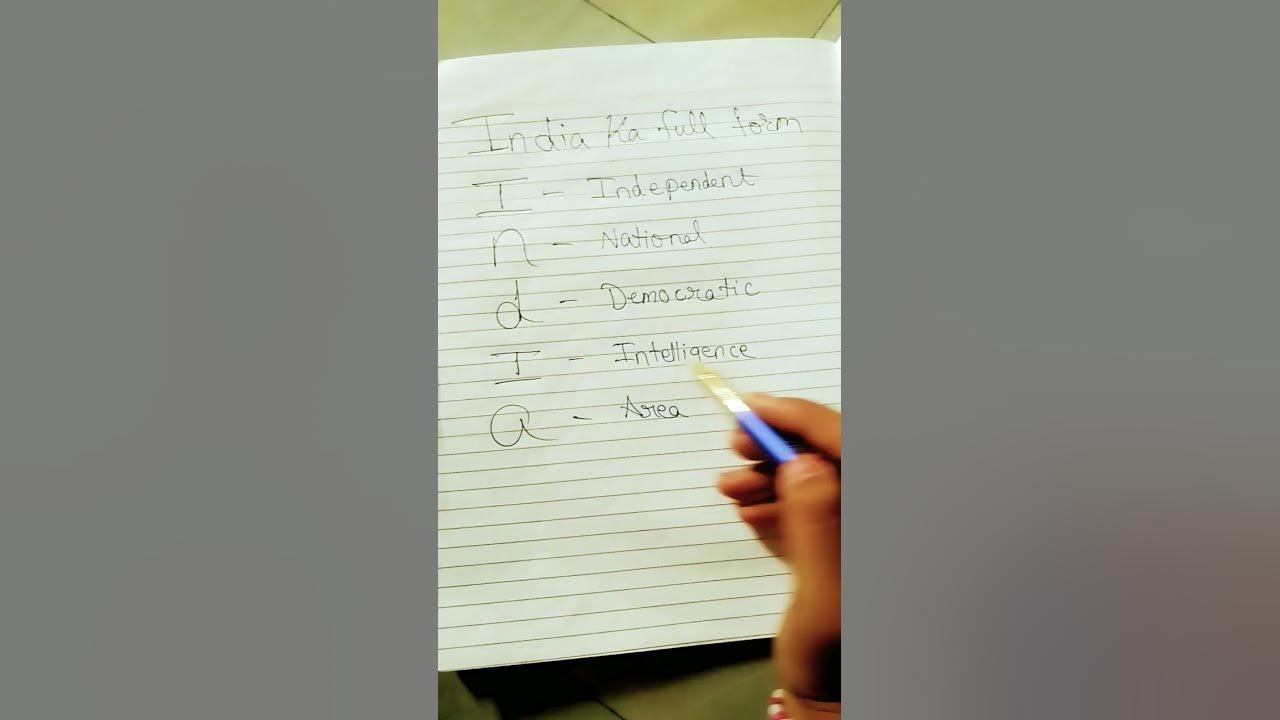 India Ka full form
I - Independent
n - National
d - Democratic
I - Intelligence
a - Area